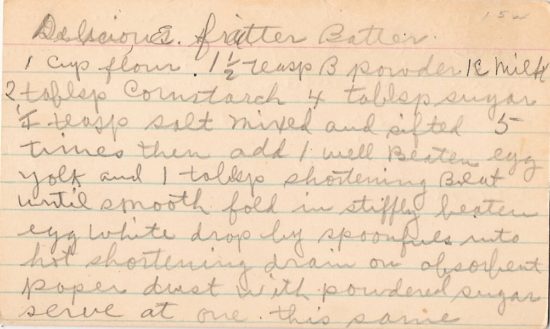 152
Delicious fritter Batter
1 cup flour 1 1/2 teasp B powder 1c Milk
2 tablsp Cornstarch 4 tablsp sugar
1/4 teasp salt mixed and sifted 5
times then add 1 well Beaten egg
yolk and 1 tablsp shortening Beat
until smooth fold in stiffly beaten
egg white drop by spoonfuls into
hot shortening drain on absorbent
paper dust with powdered sugar
serve at one this same